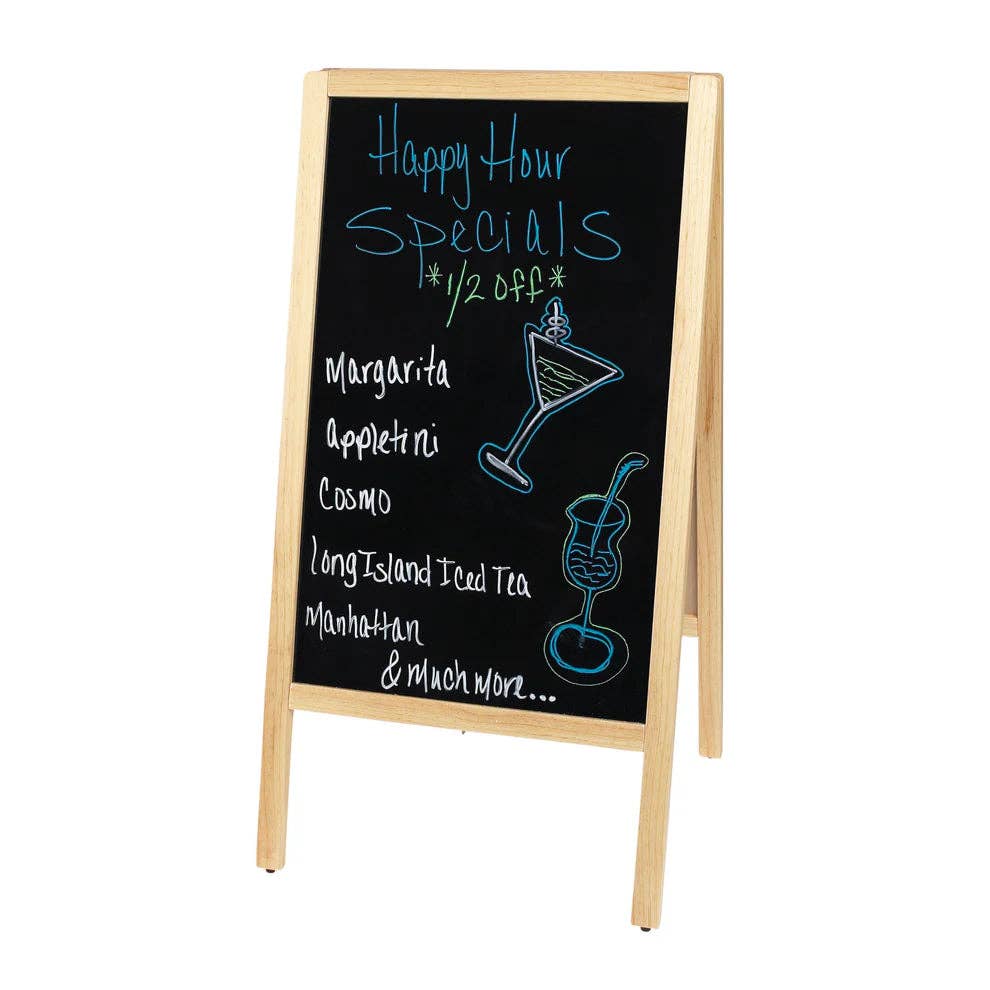 Happy Hour
Specials
*1/2 off*
Margarita
Appletini
Cosmo
Long Island Iced Tea
Manhattan
& Much more...